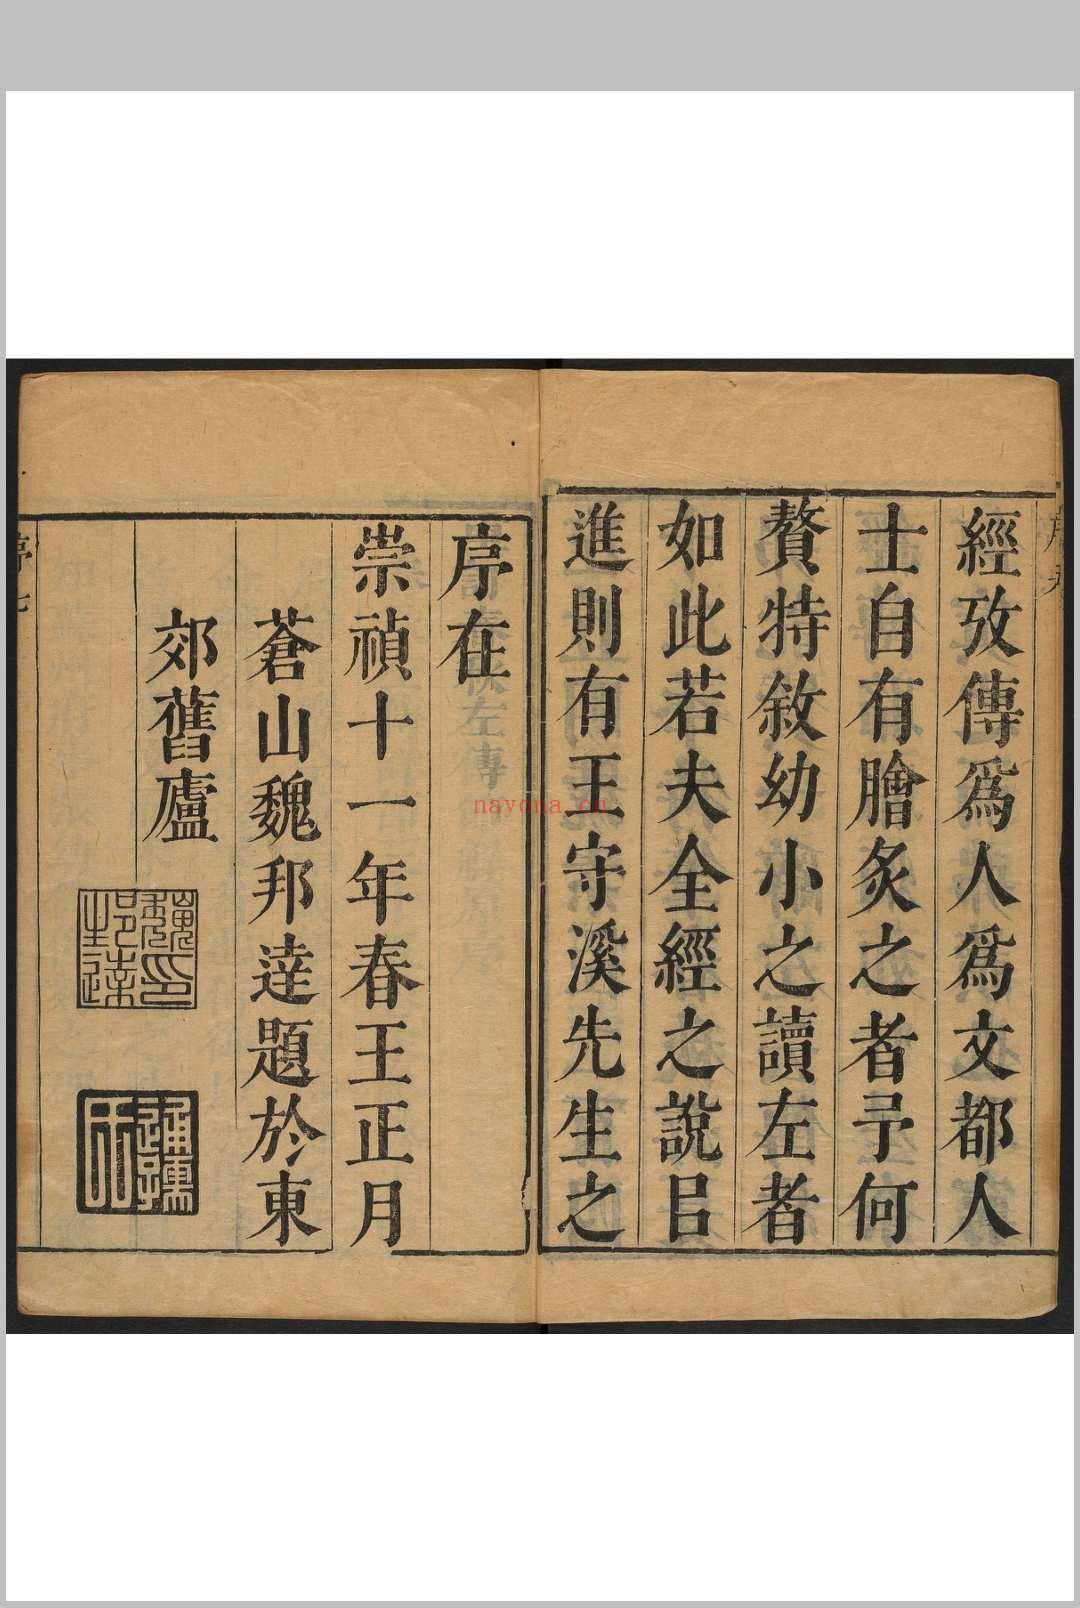 經攷傳爲人爲文都人
士自有膾炙之者予何
贅特敘幼小之讀左者
如此若夫全經之說㠯
進則有王守溪先生之
序在
崇禎十一年春王正月
蒼山魏邦達題於東
郊舊廬
nayona.cn